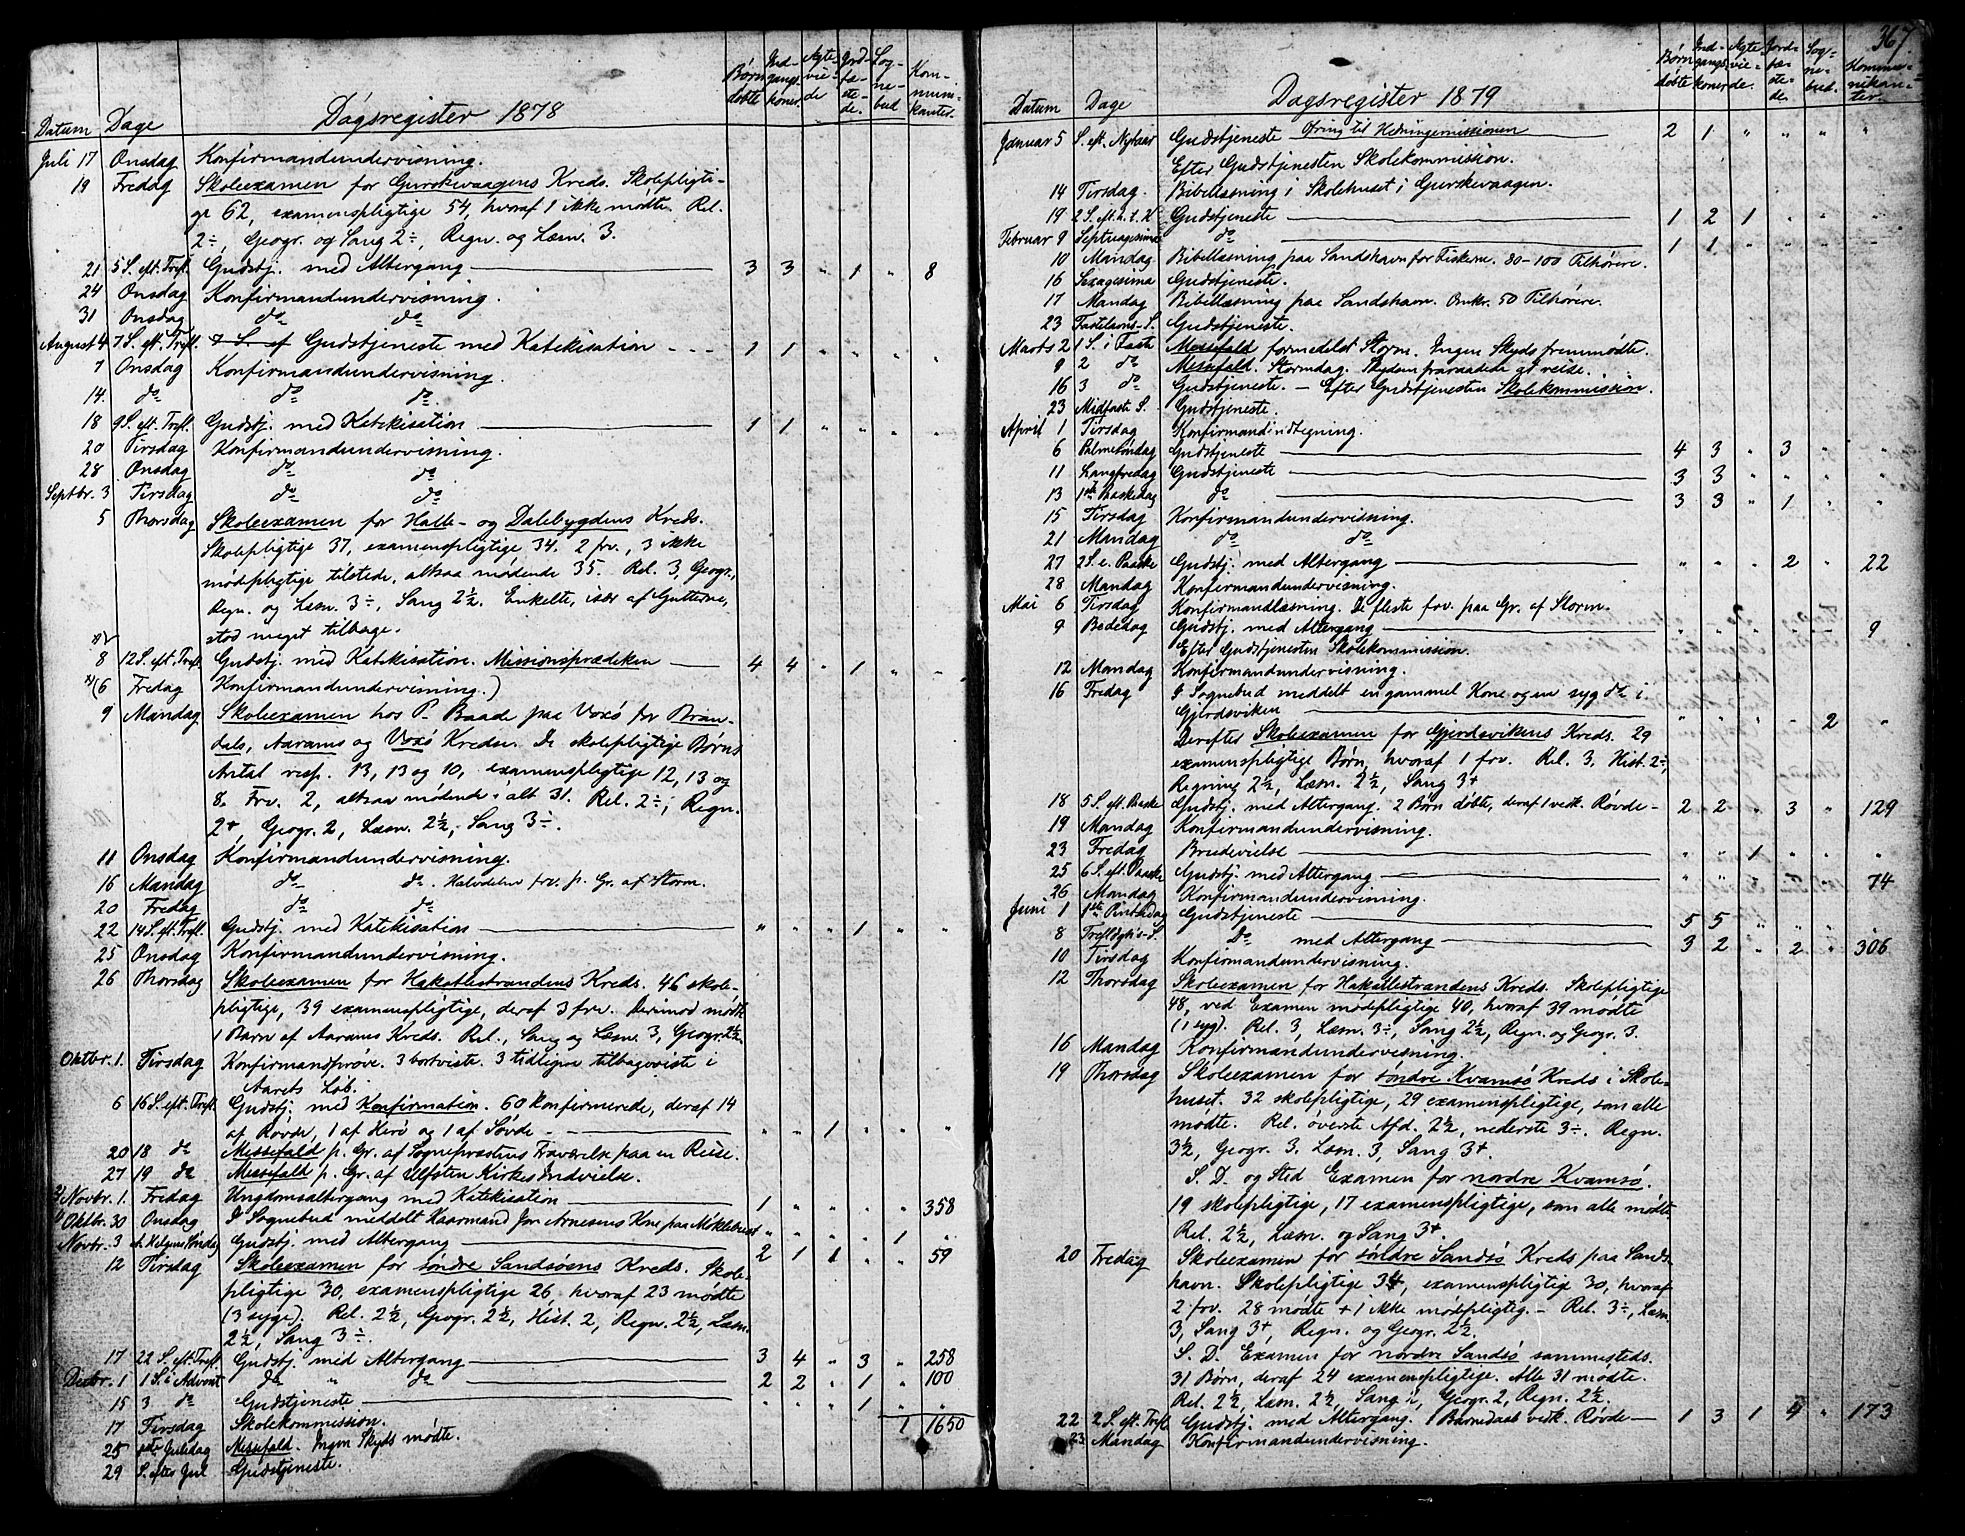 Datum Dage Dagsregister 1878 Børn døbte Ind-gangs-koner Ægte-vie-de Jord-fæ-ste-de. Sog-ne-bud Kom-muni-kanter.
Juli 17 Onsdag Konfirmandundervisning.
19 Fredag Skoleexamen for Gurskevaagens Kreds. Skolepligti-
ge 62, examenspligtige 54, hvoraf 1 ikke mødte. Rel.
2÷, Geogr. og Sang 2÷, Regn. og Læsn. 3.
21 5 S. eft. Trefl. Gudstj. med Altergang — 3 3 " 1 " 8
24 Onsdag Konfirmandundervisning.
31 Onsdag do do
August 4 7 S. eft. Trefl. 7 S. af Gudstjeneste med Katekisation - - - 1 1 " " " "
7 Onsdag Konfirmandundervisning.
14. do do do
18 9 S. eft. Trefl. Gudstj. med Katekisation — 1 1 " " " "
20 Tirsdag Konfirmandundervisning.
28 Onsdag do do
Septbr. 3 Tirsdag do do
5 Thorsdag Skoleexamen for Halle- og Dalebygdens Kreds.
Skolepligtige 37, examenspligtige 34. 2 frv., 3 ikke
mødepligtige tilstede, altsaa mødende 35. Rel. 3, Geogr.,
Regn. og Læsn. 3÷, Sang 2½. Enkelte, især af Gutterne,
stod meget tilbage.
8 12 S. eft. Trefl. Gudstj. med Katekisation. Missionsprædiken — 4 4 " 1 " "
(6 Fredag Konfirmandundervisning.)
9 Mandag Skoleexamen hos P. Baade paa Voxø for Bran-
dals, Aarams og Voxø Kredse. De skolepligtige Børns
Antal resp. 13, 13 og 10, examenspligtige 12, 13 og
8. Frv. 2, altsaa mødende i alt 31. Rel. 2÷, Regn.
2+, Geogr. 2, Læsn. 2½, Sang 3÷.
11 Onsdag Konfirmandundervisning.
16 Mandag do do. Halvdelen frv. p. Gr. af Storm.
20 Fredag do do
22 14 S. eft. Trefl. Gudstj. med Katekisation — " " " 1 " "
25 Onsdag Konfirmandundervisning.
26 Thorsdag Skoleexamen for Hakallestrandens Kreds. 46 skole-
pligtige, 39 examenspligtige, deraf 3 frv. Derimod mødte
1 Barn af Aarams Kreds. Rel., Sang og Læsn. 3, Geogr. 2½.
Oktbr. 1. Tirsdag Konfirmandprøve. 3 bortviste. 3 tidligere tilbageviste i
Aarets Løb.
6 16 S. eft. Trefl. Gudstj. med Konfirmation. 60 konfirmerede, deraf 14
af Røvde, 1 af Herø og 1 af Søvde - " " 1 " " "
20 18 do Messefald p. Gr. af Sognepræstens Fraværelse paa en Reise.
27 19 do Messefald p. Gr. af Ulfsten Kirkes Indvielse.
Novbr. 1. Fredag Ungdomsaltergang med Katekisation — 1 " " " " 358
Oktbr. 30 Onsdag I Sognebud meddelt Kaarmand Jon Arnesens Kone paa Møklebust " " " " 1 "
Novbr. 3 A. Helgens Søndag Gudstj. med Altergang — 2 1 1 " " 59
12 Tirsdag Skoleexamen for søndre Sandsøens Kreds. Skole-
pligtige 30, examenspligtige 26. hvoraf 23 mødte
(3 syge). Rel. 2½, Geogr. 2½, Hist. 2, Regn. 2½, Læsn.
2½, Sang 3÷.
17 22 S. eft. Trefl. Gudstj. med Altergang — 3 4 " 3 " 258
Decbr. 1 1 S. i Advent do " do — 2 2 " 1 " 100
15 3 do Gudstjeneste — " " " 1 " "
17 Tirsdag Skolekommission. 1 1650
25 1ste Juledag Messefald. Ingen Skyds mødte.
29 S. efter Jul Gudstjeneste.
367.
Datum Dage Dagsregister 1879 Børn døbte Ind-gangs-koner Ægte-vie-de. Jord-fæ-ste-de. Sog-ne-bud. Kommu-nikan-ter.
Januar 5 S. eft. Nytaar Gudstjeneste Ofring til Hedningemissionen — 2 1 " " " "
Efter Gudstjenesten Skolekommission.
14 Tirsdag. Bibellæsning i Skolehuset i Gurskevaagen.
19 2 S. eft. h. 3. K Gudstjeneste — 1 2 1 " " "
Februar 9 Septuagesima do — 1 1 " " " "
10 Mandag Bibellæsning paa Sandshavn for Fiskerne. 80-100 Tilhørere.
16 Sexagesima Gudstjeneste.
17 Mandag Bibellæsning paa Sandshavn. Omkr. 50 Tilhørere.
23 Fastelavns-S. Gudstjeneste.
Marts 2 1 S. i Faste Messefald formedelst Storm. Ingen Skyds fremmødte.
9 2 do Messefald. Stormdag. Skydsen fraraadede at reise.
16 3 do Gudstjeneste. – Efter Gudstjenesten Skolekommission.
23 Midfaste S. Gudstjeneste.
April 1 Tirsdag Konfirmandindtegning.
6 Palmesøndag Gudstjeneste — 4 3 " 3 " "
11 Langfredag Gudstjeneste — 3 3 " " " "
13 1ste Paaskedag do — 3 3 " 1 " "
15 Tirsdag Konfirmandundervisning.
21 Mandag do do
27 2 S. e. Paaske Gudstj. med Altergang — " " " 2 " 22
28 Mandag Konfirmandundervisning.
Mai 6 Tirsdag Konfirmandlæsning. De fleste frv. paa Gr. af Storm.
9 Bededag Gudstj. med Altergang — " " " " " 9
Efter Gudstjenesten Skolekommission.
12 Mandag Konfirmandundervisning.
16 Fredag I Sognebud meddelt en gammel Kone og en syg do i
Gjerdsviken — " " " " 2 "
Derefter Skoleexamen for Gjerdsvikens Kreds. 29
examenspligtige Børn, hvoraf 1 frv. Rel. 3, Hist. 2÷,
Regning 2½, Læsn. 2½, Sang 3+
18 5 S. eft. Paaske Gudstj. med Altergang. 2 Børn døbte, deraf 1 vedk. Røvde - 2 2 " 3 " 129
19 Mandag Konfirmandundervisning.
23 Fredag Brudevielse — " " 1 " " "
25 6 S. eft. Paaske Gudstj. med Altergang — " " " " " 74
26 Mandag Konfirmandundervisning.
Juni 1 1ste Pintsedag Gudstjeneste — 5 5 " " " "
8 Trefldghs-S. Do med Altergang — 3 2 " 2 " 306
10 Tirsdag Konfirmandundervisning.
12 Thorsdag Skoleexamen for Hakallestrandens Kreds. Skolepligtige
48, ved Examen mødepligtige 40, hvoraf 39 mødte
(1 syg). Rel. 3, Læsn. 3÷, Sang 2½, Regn. og Geogr. 3.
16 Mandag Konfirmandundervisning.
19 Thorsdag Skoleexamen for søndre Kvamsø Kreds i Skole-
huset. 32 skolepligtige, 29 examenspligtige, som alle
mødte. Rel. øverste Afd. 2½, nederste 3÷. Regn.
3½, Geogr. 3. Læsn. 3, Sang 3+.
S. D. og Sted Examen for nordre Kvamsø.
19 skolepligtige, 17 examenspligtige, som alle mødte.
Rel. 2½, Læsn. og Sang 3+.
20 Fredag Skoleexamen for søndre Sandsø Kreds paa Sands-
havn. Skolepligtige 34, examenspligtig 30, hvoraf
2 frv. 28 mødte + 1 ikke mødepligtig. – Rel. 3÷, Læsn.
3, Sang 3+, Regn. og Geogr. 2½.
S. D. Examen for nordre Sandsø sammesteds.
31 Børn, deraf 24 examenspligtige. Alle 31 mødte.
Rel. 2½, Læsn. 2½, Sang i, Geogr. 2, Regn. 2½.
22 2 S. eft. Trefl. Gudstj. med Altergang. 1 Barnedaab vedk. Røvde — 1 3 1 4 " 173
23 Mandag Konfirmandundervisning.